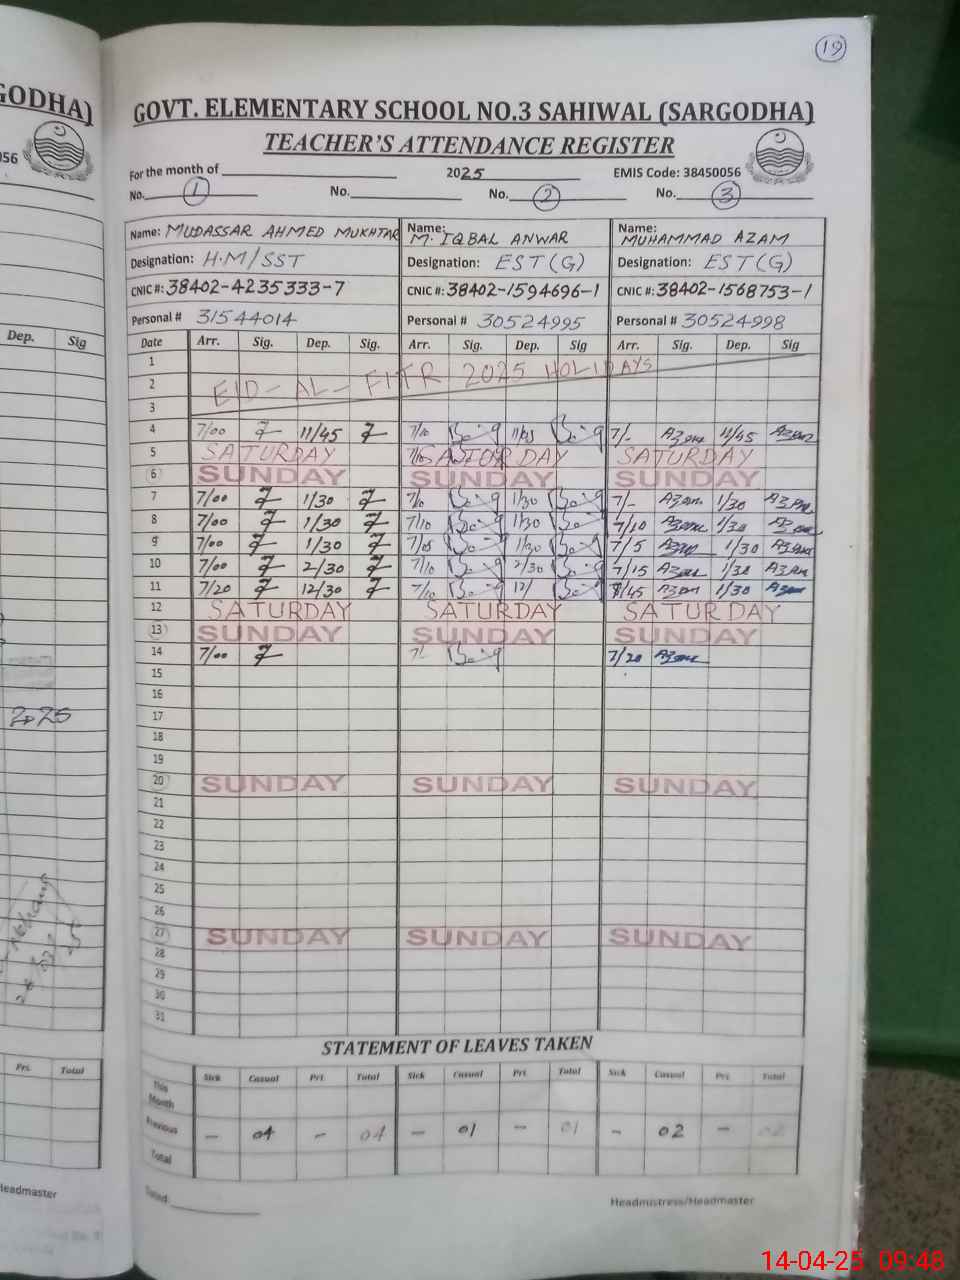 19
GODHA)
GOVT. ELEMENTARY SCHOOL NO.3 SAHIWAL (SARGODHA)
TEACHER'S ATTENDANCE REGISTER
056
For the month of 2025 EMIS Code: 38450056
No. 1 No. No. 2 No. 3
Name: MUDASSAR AHMED MUKHTAR Name: M. IQBAL ANWAR Name: MUHAMMAD AZAM
Designation: H.M/SST Designation: EST(G) Designation: EST(G)
CNIC #: 38402-4235333-7 CNIC #: 38402-1594696-1 CNIC #: 38402-1568753-1
Personal # 31544014 Personal # 30524995 Personal # 30524998
Dep. Sig Date Arr. Sig. Dep. Sig. Arr. Sig. Dep. Sig Arr. Sig. Dep. Sig
1
2 EID-AL-FITR 2025 HOLIDAYS
3
4 7/00 11/45 7/10 7/- Azam 11/45 Azam
5 SATURDAY SATURDAY SATURDAY
6 SUNDAY SUNDAY SUNDAY
7 7/00 1/30 1/30 7/- Azam 1/30 Azam
8 7/00 1/30 7/10 1/30 7/10 Azam 1/30 Azam
9 7/00 1/30 7/05 1/30 7/5 Azam 1/30 Azam
10 7/00 2/30 7/10 2/30 7/15 Azam 1/30 Azam
11 7/20 12/30 7/10 12/ 8/45 Azam 1/30 Azam
12 SATURDAY SATURDAY SATURDAY
13 SUNDAY SUNDAY SUNDAY
14 7/00 7/- 7/20 Azam
15
16
2025 17
18
19
20 SUNDAY SUNDAY SUNDAY
21
22
23
24
25
26
27 SUNDAY SUNDAY SUNDAY
28
29
30
31
STATEMENT OF LEAVES TAKEN
Pri. Total Sick Casual Pri. Total Sick Casual Pri. Total Sick Casual Pri. Total
This Month
Previous - 04 - 04 - 01 - 01 - 02 - 02
Total
Headmaster
Dated: Headmistress/Headmaster
14-04-25 09:48